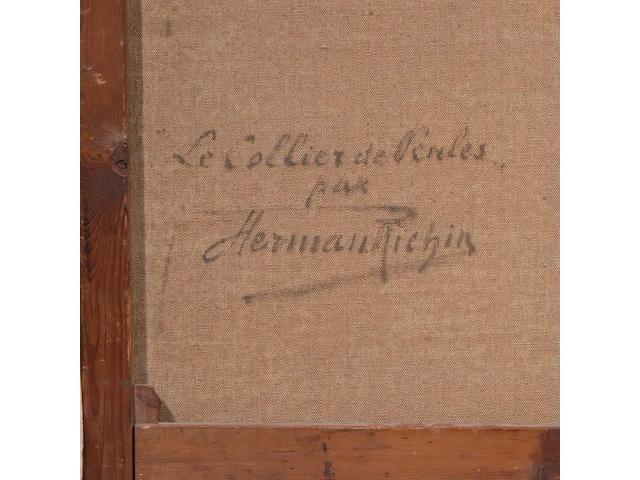 Le Collier de Perles
par
Herman Richir